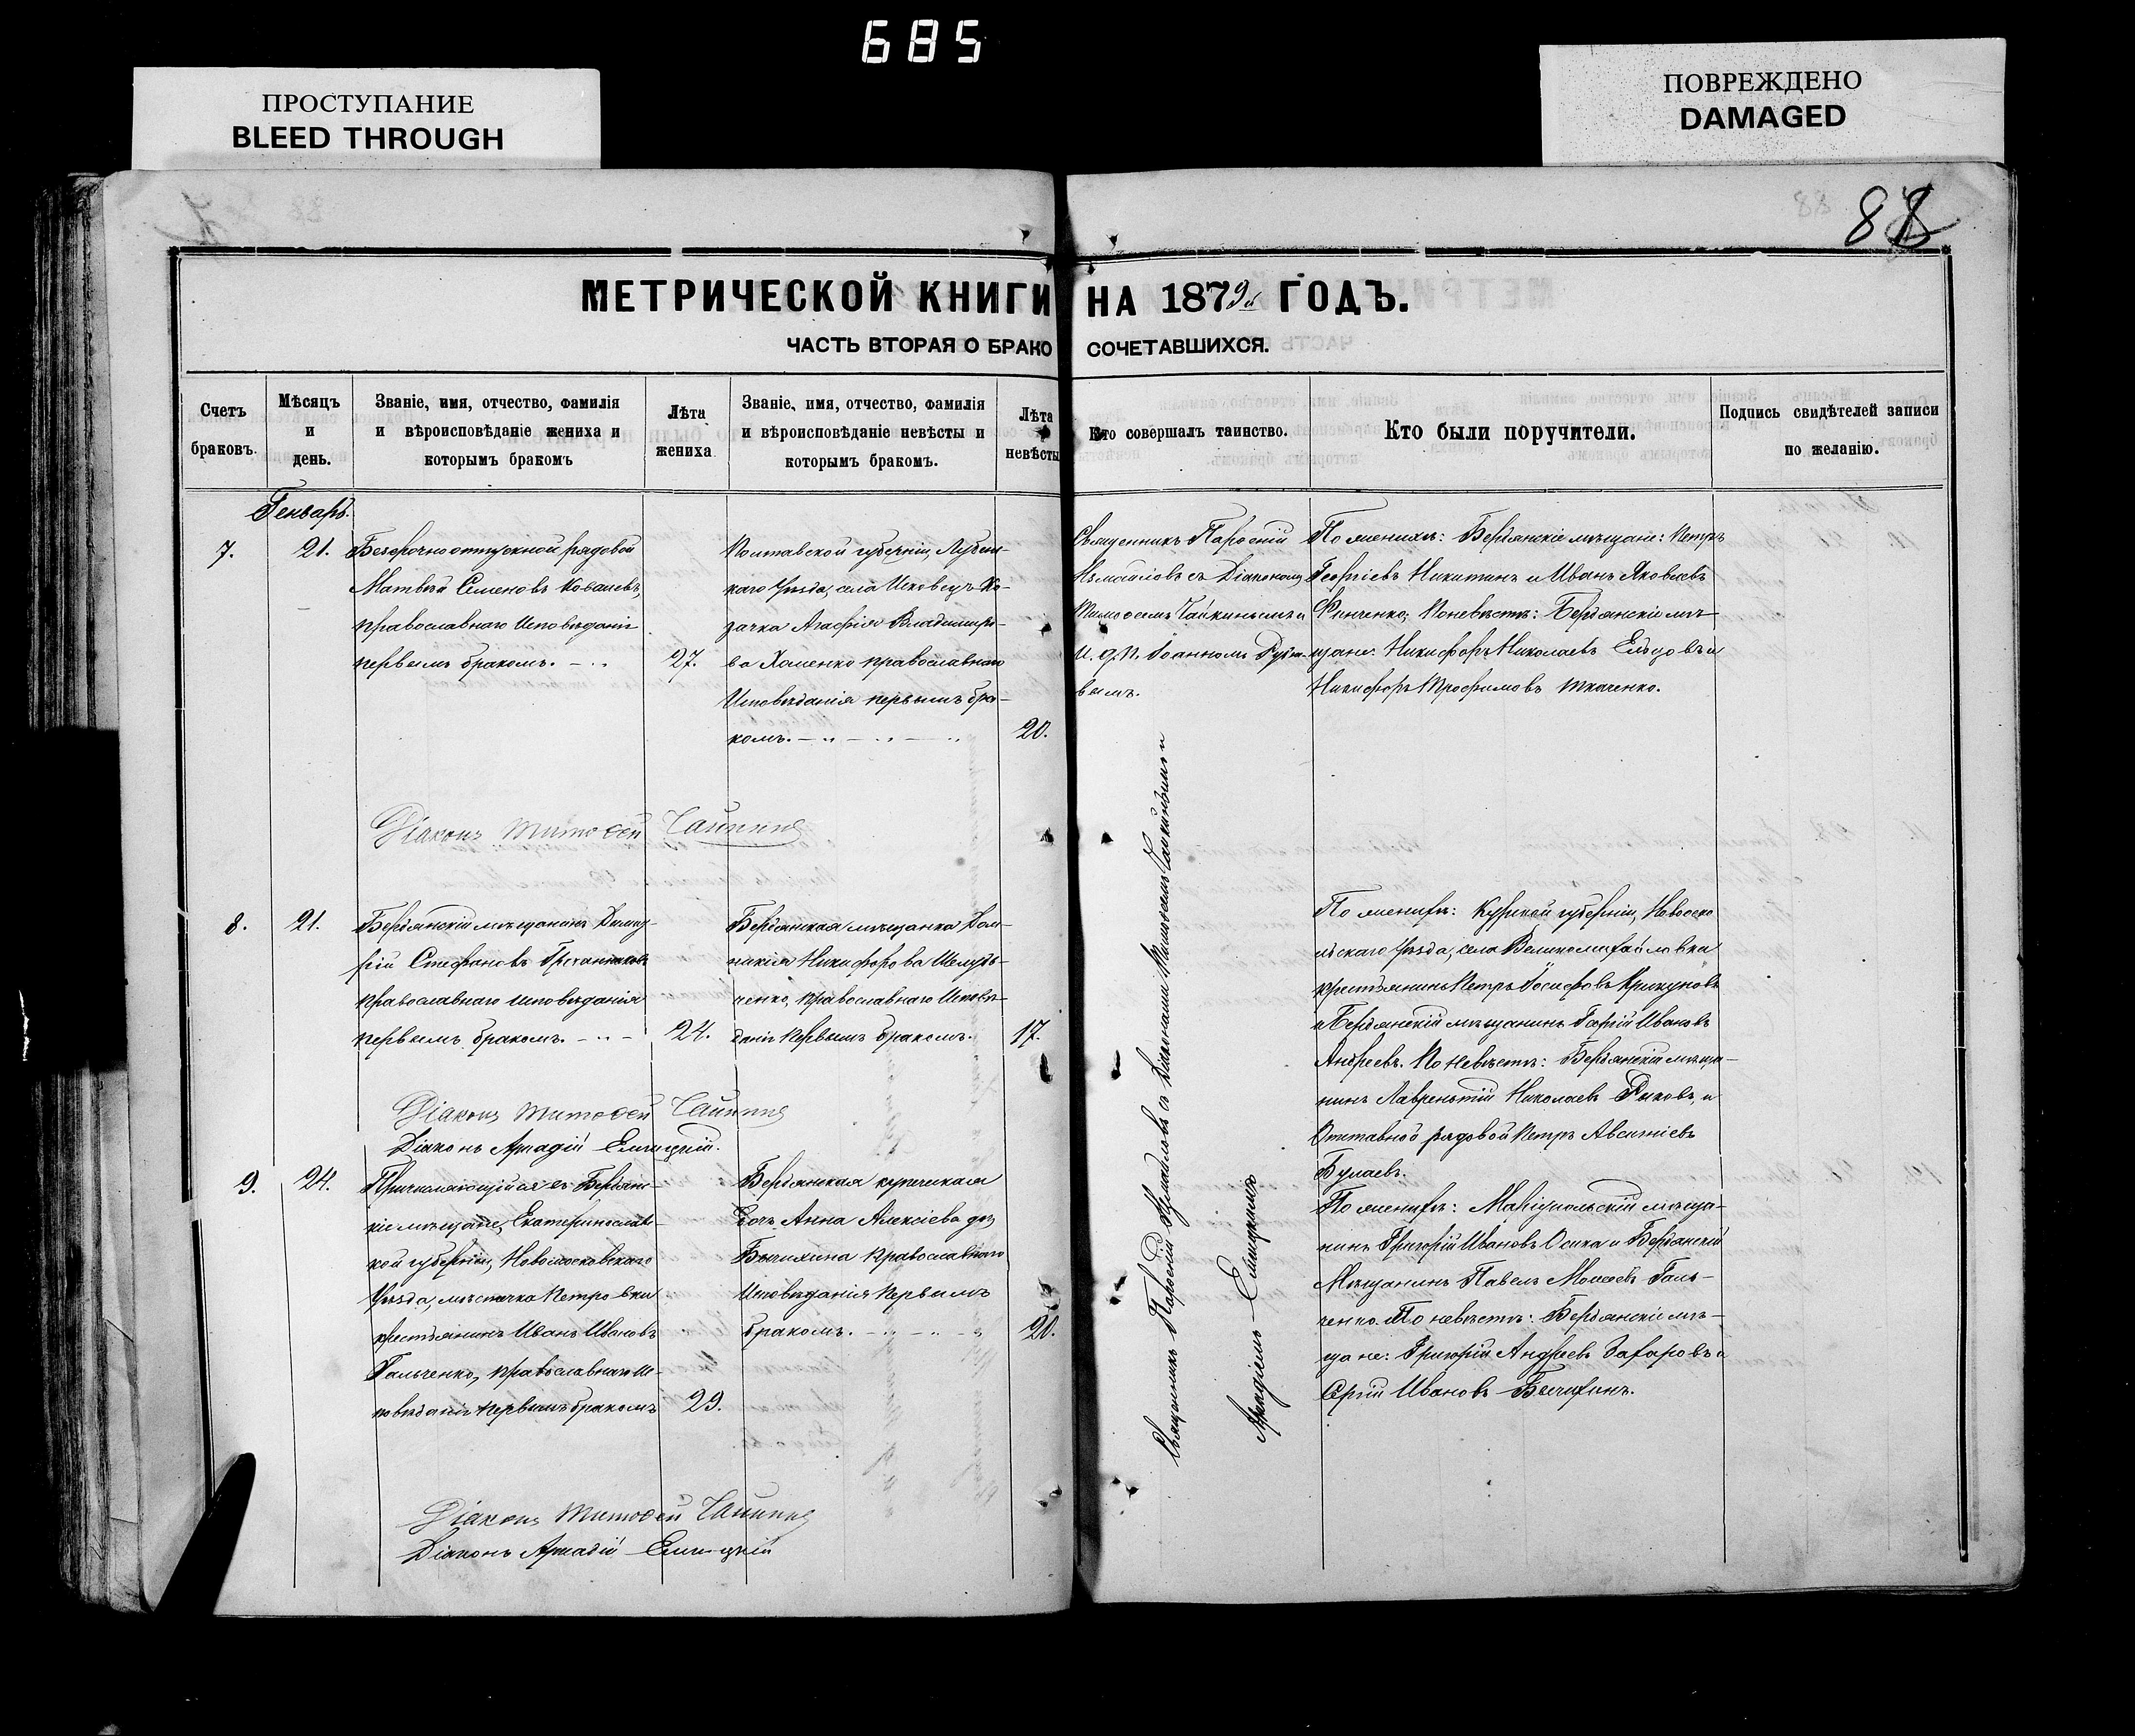 685
ПРОСТУПАНИЕ
BLEED THROUGH
ПОВРЕЖДЕНО
DAMAGED
88
МЕТРИЧЕСКОЙ КНИГИ НА 1879й ГОДЪ.
ЧАСТЬ ВТОРАЯ О БРАКОСОЧЕТАВШИХСЯ.
Счетъ браковъ.
Мѣсяцъ и день.
Званіе, имя, отчество, фамилія и вѣроисповѣданіе жениха и которымъ бракомъ
Лѣта жениха
Званіе, имя, отчество, фамилія и вѣроисповѣданіе невѣсты и которымъ бракомъ.
Лѣта невѣсты
Кто совершалъ таинство.
Кто были поручители.
Подпись свидѣтелей записи по желанію.
Генварь.
7.
21.
Безсрочноотпускной рядовой
Матвѣй Семеновъ Ковалевъ,
православнаго Исповѣданія
первымъ бракомъ.
27.
Полтавской губерніи, Лубен-
каго Уѣзда, села Исковецъ Ко-
зачка Агафія Владиміро-
ва Хоменко православнаго
Исповѣданія первымъ бра-
комъ.
20.
Священникъ Парѳеній
Измаиловъ съ Діакономъ
Тимоѳеемъ Чайкинымъ и
И. д. п. Іоанномъ
вымъ.
По женихѣ: Бердянскіе мѣщане: Петръ
Георгіевъ Никитинъ и Иванъ Яковлевъ
Финченко; По невѣстѣ: Бердянскіе мѣ-
щане: Никифоръ Николаевъ и
Никифоръ Трофимовъ Ткаченко.
Діаконъ Тимоѳей Чайкинъ
8.
21.
Бердянскій мѣщанинъ Димит-
рій Стефановъ
православнаго исповѣданія
первымъ бракомъ.
24.
Бердянская мѣщанка Дом-
никія Никифорова Шелудь-
ченко, православнаго Исповѣ-
данія первымъ бракомъ.
17.
По женихѣ: Курской губерніи, Новооско
льскаго Уѣзда, села Великомихайловки
крестьянинъ Петръ Іосифовъ Крикуновъ
и Бердянскій мѣщанинъ Ивановъ
Андреевъ. По невѣстѣ: Бердянскій мѣща-
нинъ Лаврентій Николаевъ Рыковъ, и
Отставной рядовой Петръ
Булаевъ.
Діаконъ Тимоѳей Чайкинъ
Діаконъ Аркадій
9.
24.
Причисляющійся въ Бердянс-
кіе мѣщане, Екатеринослав-
кой губерніи, Новомосковскаго
Уѣзда, мѣстечка Петровки
крестьянинъ Иванъ Ивановъ
Гальченко, православнаго Ис-
повѣданія первымъ бракомъ
29.
Бердянская купеческая
дочь Анна Алексіева
Бычихина православнаго
Исповѣданія первымъ
бракомъ.
20.
Священникъ Парѳеній Измаиловъ съ Діаконами Тимоѳеемъ Чайкинымъ и
Аркадіемъ
По женихѣ: Маріупольскій мѣща-
нинъ Григорій Ивановъ Осика и Бердянскій
Мѣщанинъ Павелъ Моисеевъ Галь-
ченко. По невѣстѣ: Бердянскіе мѣ-
щане: Григорій Андреевъ Захаровъ и
Сергій Ивановъ Бычихинъ.
Діаконъ Тимоѳей Чайкинъ
Діаконъ Аркадій